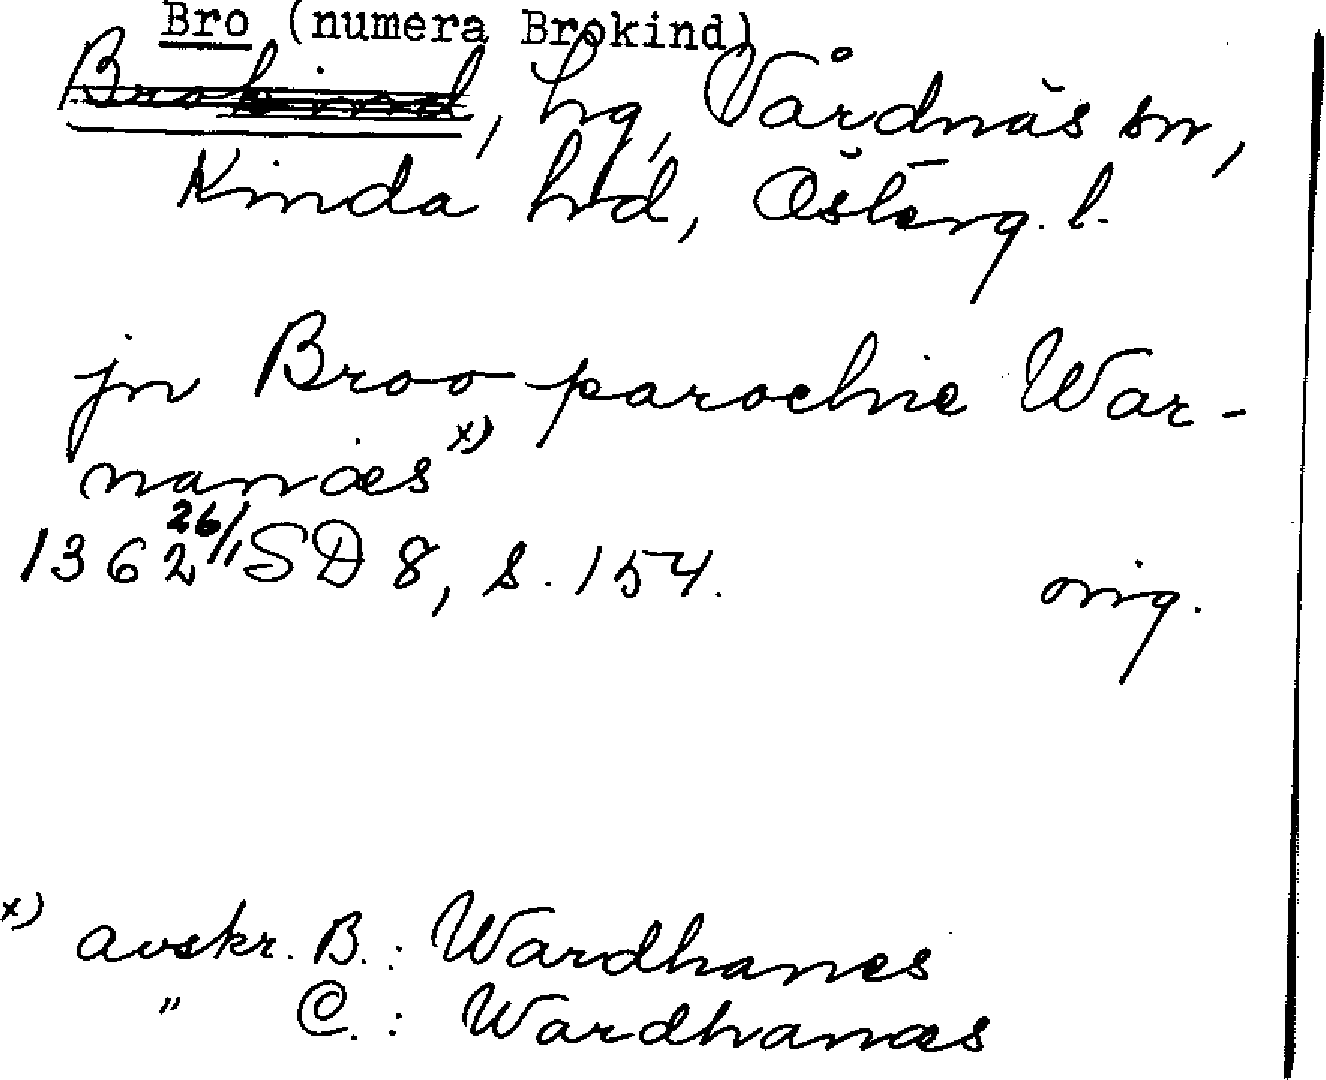 Bro (numera Brokind)
Brokind, hg, Vårdnäs sn,
Kinda hd, Österg. l.
jn Broo parochie War-
nanæs x)
1362 26/1 SD 8, s. 154. orig.
x) avskr. B.: Wardhanes
" C.: Wardhanæs